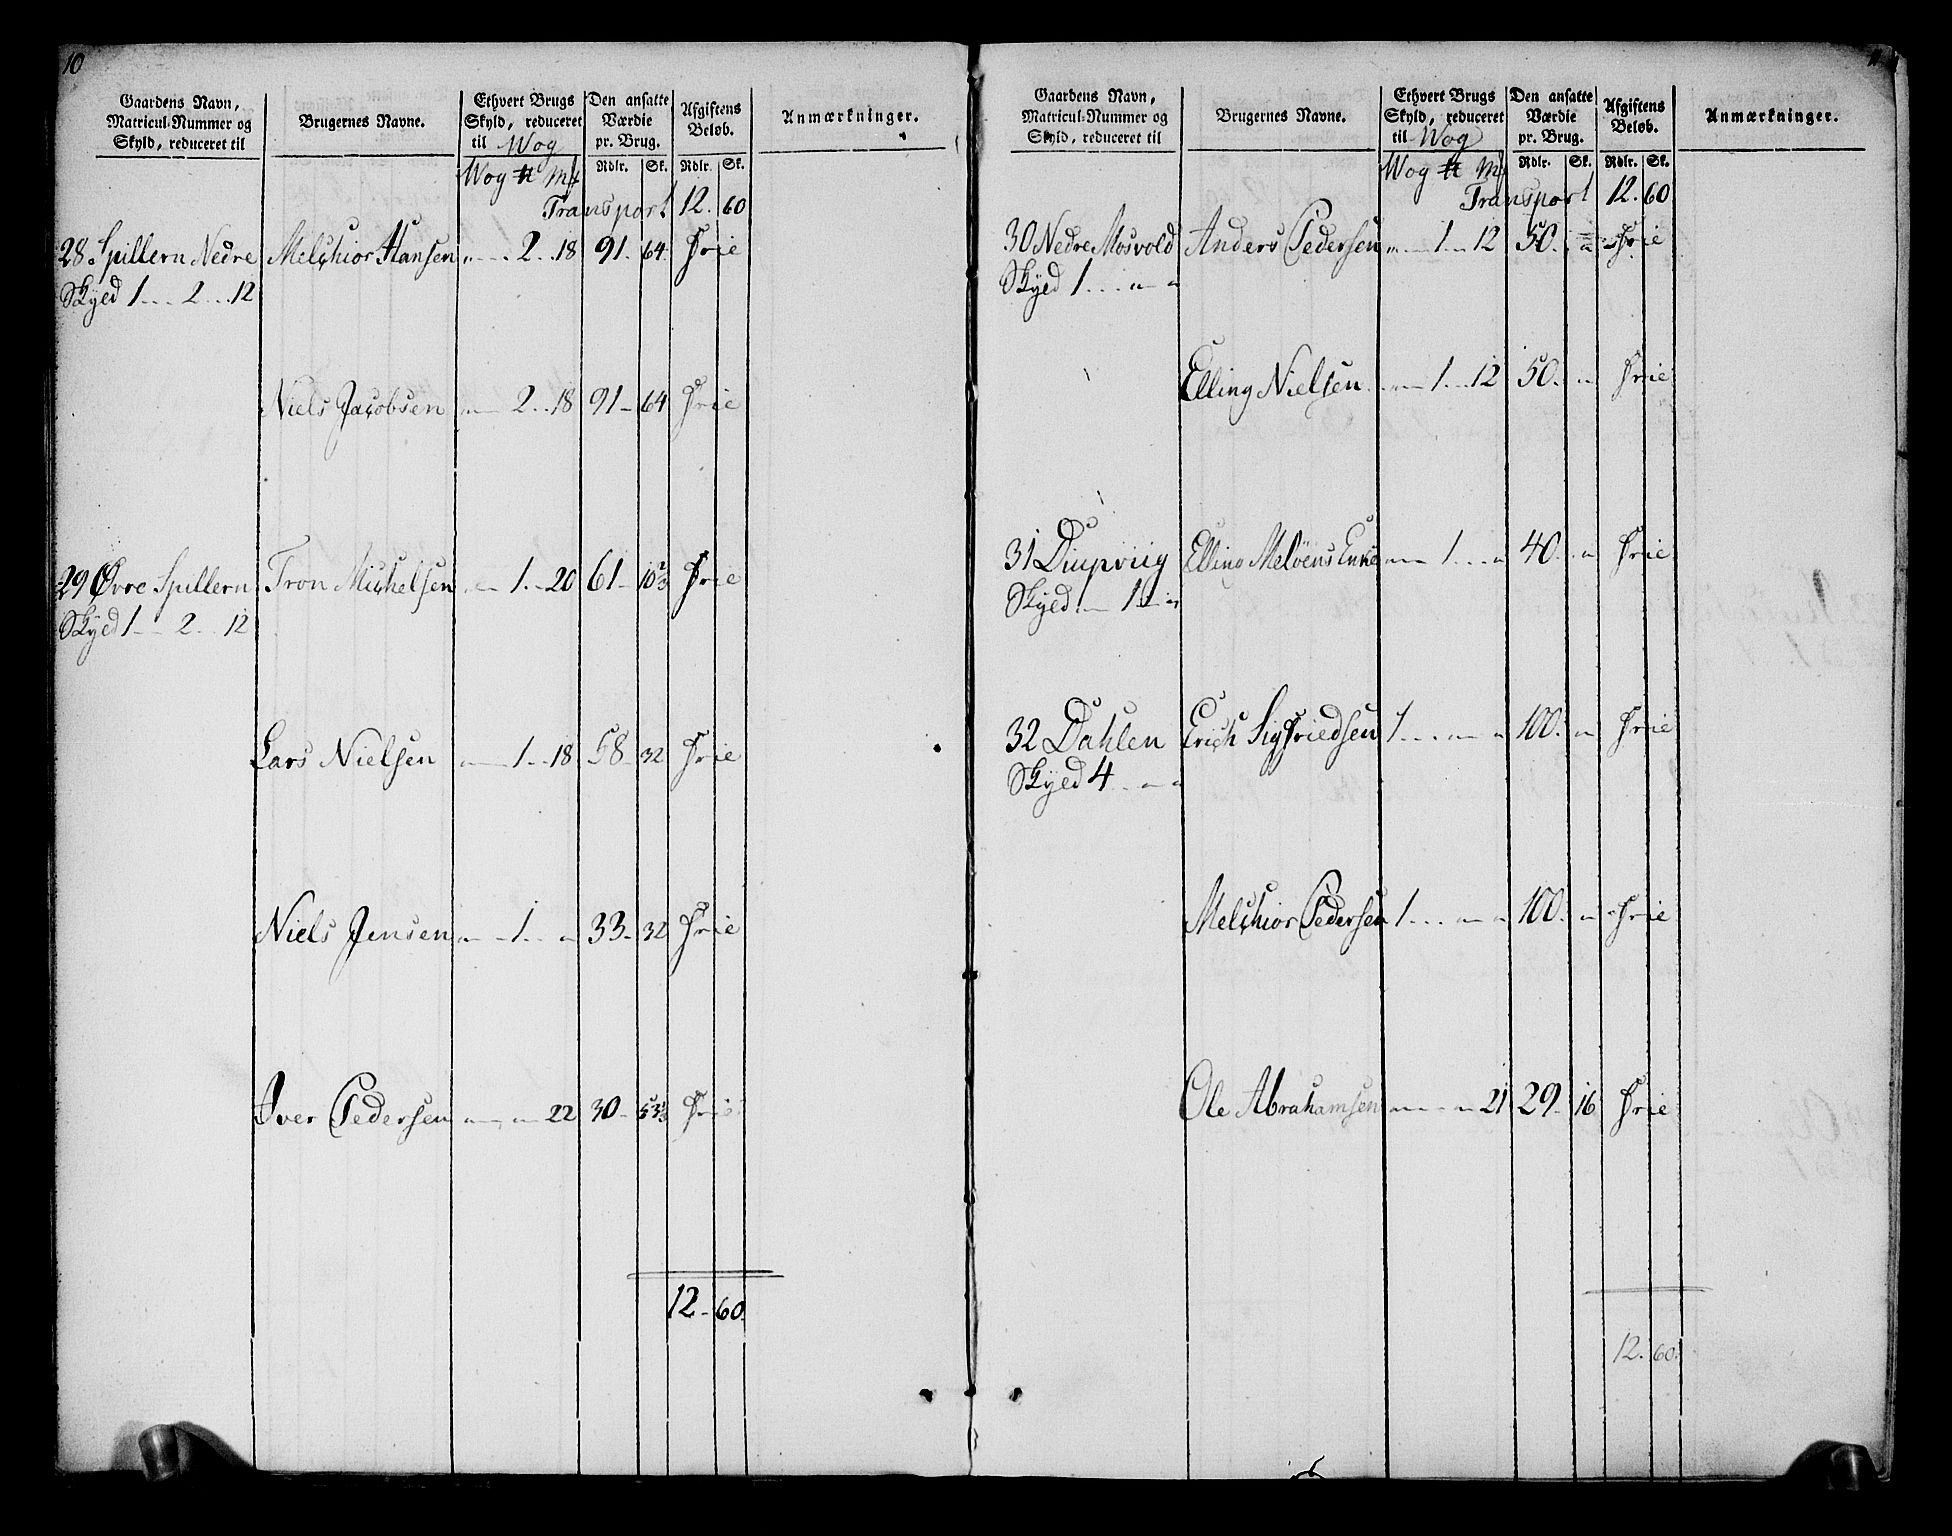 10
Gaardens Navn, Matricul-Nummer og Skyld, reduceret til | Brugernes Navne. | Ethvert Brugs Skyld, reduceret til Wog | Den ansatte Værdie pr. Brug. | Afgiftens Beløb. | Anmærkninger.
Wog ℔ Mk | Rdlr. | Sk. | Rdlr. | Sk.
Transport 12. 60
28 Spillern Nedre Melchior Hansen " - . 2 . . 18 91 . 64 . Frie
Skyed 1 . . . 2 . . . 12
Niels Jacobsen " - 2 . . 18 91 - 64 Frie
29 Øvre Spillern Tron Michelsen " - 1 . - 20 61 - 10 2/3 Frie
Skyed 1 . . 2 . . . 12
Lars Nielsen " - 1 . - 18 58 - 32 Frie
Niels Jensen " - 1 . . " 33 - 32 Frie
Iver Pedersen " - " - 22 30 - 53 1/3 Frie
12 - 60.
11
Gaardens Navn, Matricul-Nummer og Skyld, reduceret til | Brugernes Navne. | Ethvert Brugs Skyld, reduceret til Wog | Den ansatte Værdie pr. Brug. | Afgiftens Beløb. | Anmærkninger.
Wog ℔ Mk | Rdlr. | Sk. | Rdlr. | Sk.
Transport 12. 60
30 Nedre Mosvold Anders Pedersen " - 1 . . 12 50 . " Frie
Skyed 1 . . . " - "
Elling Nielsen " - 1 . . . 12 50 . " Frie
31 Diupviig Elling Meløens Enke " - 1 . . . " 40 . " Frie
Skyed " 1 . "
32 Dahlen Erich Sigfriedsen 1 . . . " - " 100 . " Frie
Skyed 4 . . " - "
Melchior Pedersen 1 . . . " - " 100 . " Frie
Ole Abrahamsen " - " - 21 29 . 16 Frie
12. 60.